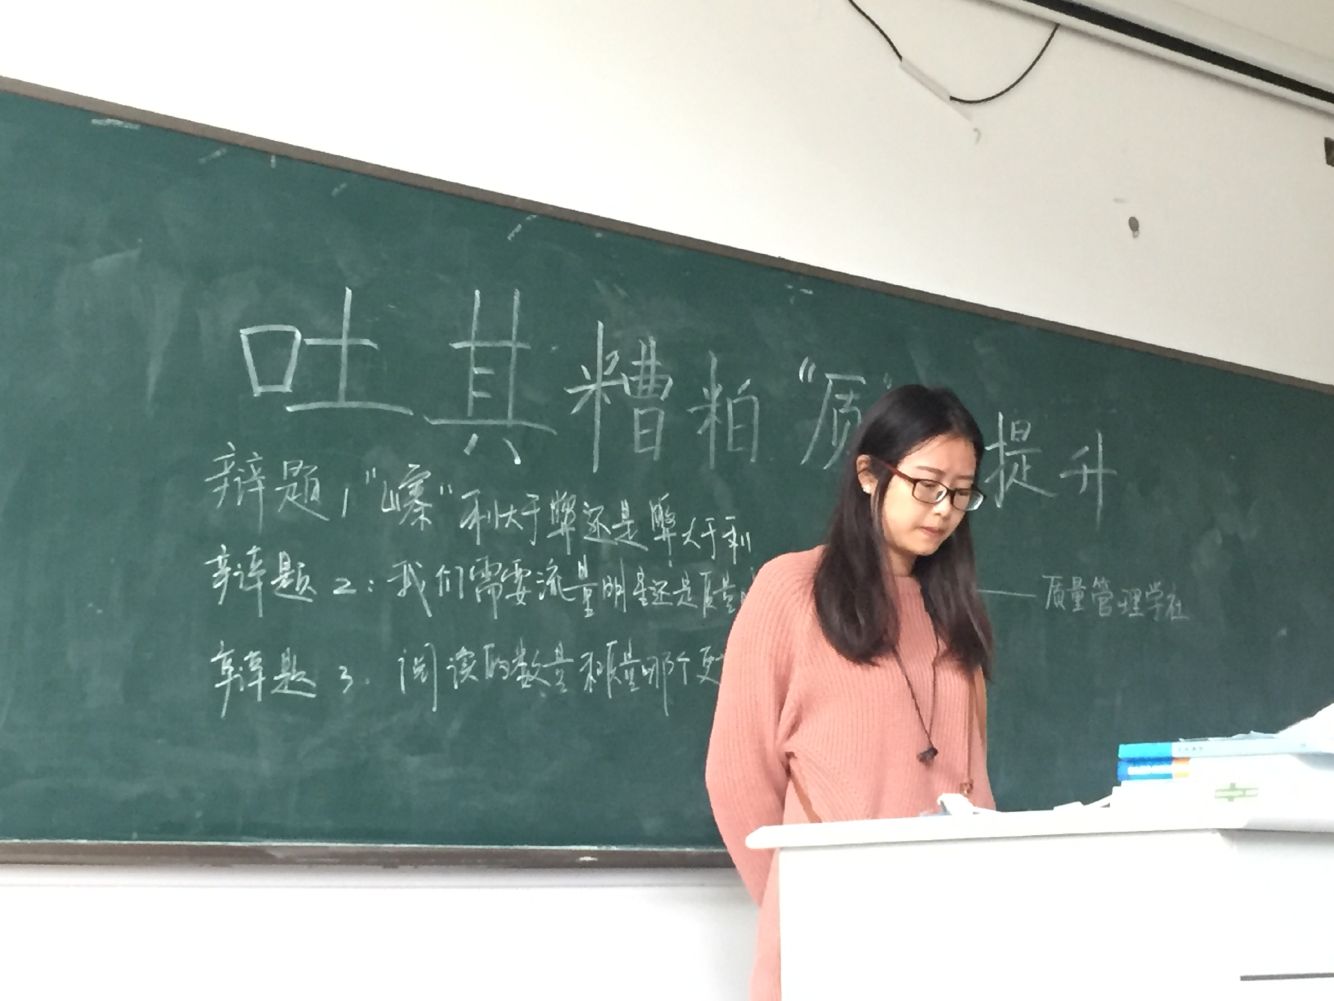 吐其糟粕“质” 提升
辩题1“山寨”利大于弊还是弊大于利
辩题2：我们需要流量明星还是质量
——质量管理学社
辩题3. 阅读的数量和质量哪个更